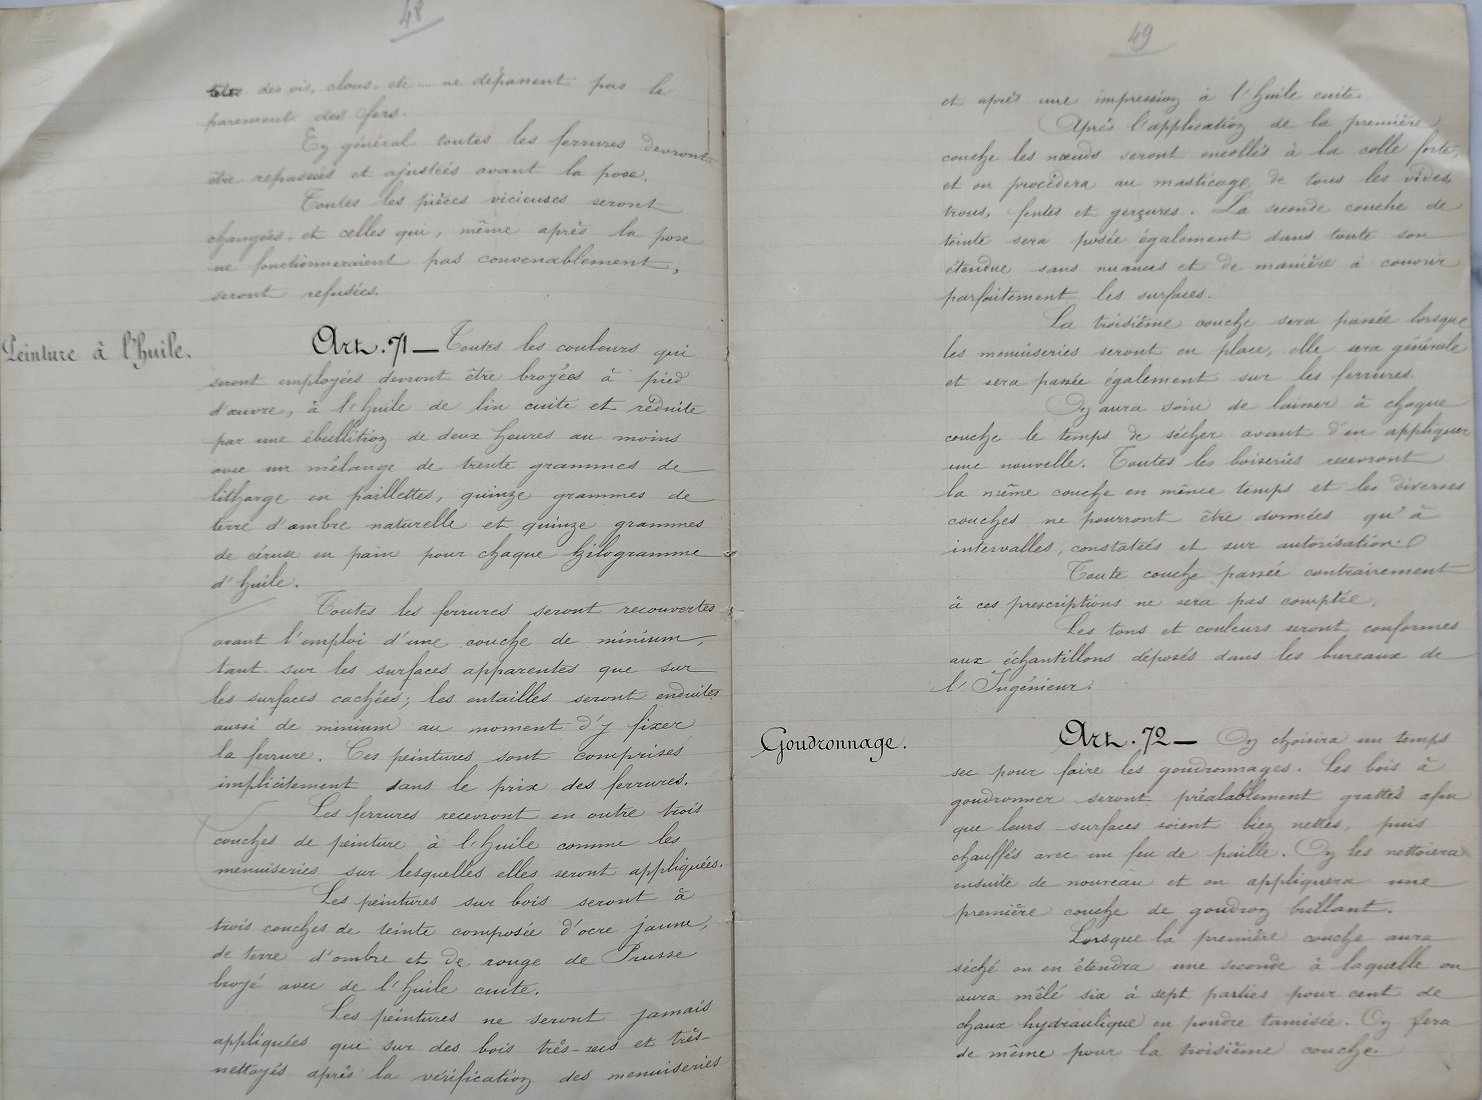 48
têtes des vis, clous, etc... ne dépassent pas le
parement des fers.
En général toutes les ferrures devront
être repassées et ajustées avant la pose.
Toutes les pièces vicieuses seront
changées, et celles qui, même après la pose
ne fonctionneraient pas convenablement,
seront refusées.
Peinture à l'huile.
Art. 71 — Toutes les couleurs qui
seront employées devront être broyées à pied
d'œuvre, à l'huile de lin cuite et réduite
par une ébullition de deux heures au moins
avec un mélange de trente grammes de
litharge en paillettes, quinze grammes de
terre d'ombre naturelle et quinze grammes
de céruse en pain pour chaque kilogramme
d'huile.
Toutes les ferrures seront recouvertes
avant l'emploi d'une couche de minium,
tant sur les surfaces apparentes que sur
les surfaces cachées; les entailles seront enduites
aussi de minium au moment d'y fixer
la ferrure. Ces peintures sont comprises
implicitement dans le prix des ferrures.
Les ferrures recevront en outre trois
couches de peinture à l'huile comme les
menuiseries sur lesquelles elles seront appliquées.
Les peintures sur bois seront à
trois couches de teinte composée d'ocre jaune,
de terre d'ombre et de rouge de Prusse
broyé avec de l'huile cuite.
Les peintures ne seront jamais
appliquées que sur des bois très-secs et très-
nettoyés après la vérification des menuiseries
49
et après une impression à l'huile cuite.
Après l'application de la première
couche les nœuds seront encollés à la colle forte,
et on procèdera au masticage de tous les vides,
trous, fentes et gerçures. La seconde couche de
teinte sera posée également dans toute son
étendue sans nuances et de manière à couvrir
parfaitement les surfaces.
La troisième couche sera passée lorsque
les menuiseries seront en place, elle sera générale
et sera passée également sur les ferrures.
On aura soin de laisser à chaque
couche le temps de sécher avant d'en appliquer
une nouvelle. Toutes les boiseries recevront
la même couche en même temps et les diverses
couches ne pourront être données qu'à
intervalles, constatées et sur autorisation.
Toute couche passée contrairement
à ces prescriptions ne sera pas comptée.
Les tons et couleurs seront conformes
aux échantillons déposés dans les bureaux de
l'Ingénieur.
Goudronnage.
Art. 72 — On choisira un temps
sec pour faire les goudronnages. Les bois à
goudronner seront préalablement grattés afin
que leurs surfaces soient bien nettes, puis
chauffés avec un feu de paille. On les nettoiera
ensuite de nouveau et on appliquera une
première couche de goudron brillant.
Lorsque la première couche aura
séché on en étendra une seconde à laquelle on
aura mêlé six à sept parties pour cent de
chaux hydraulique en poudre tamisée. On fera
de même pour la troisième couche.